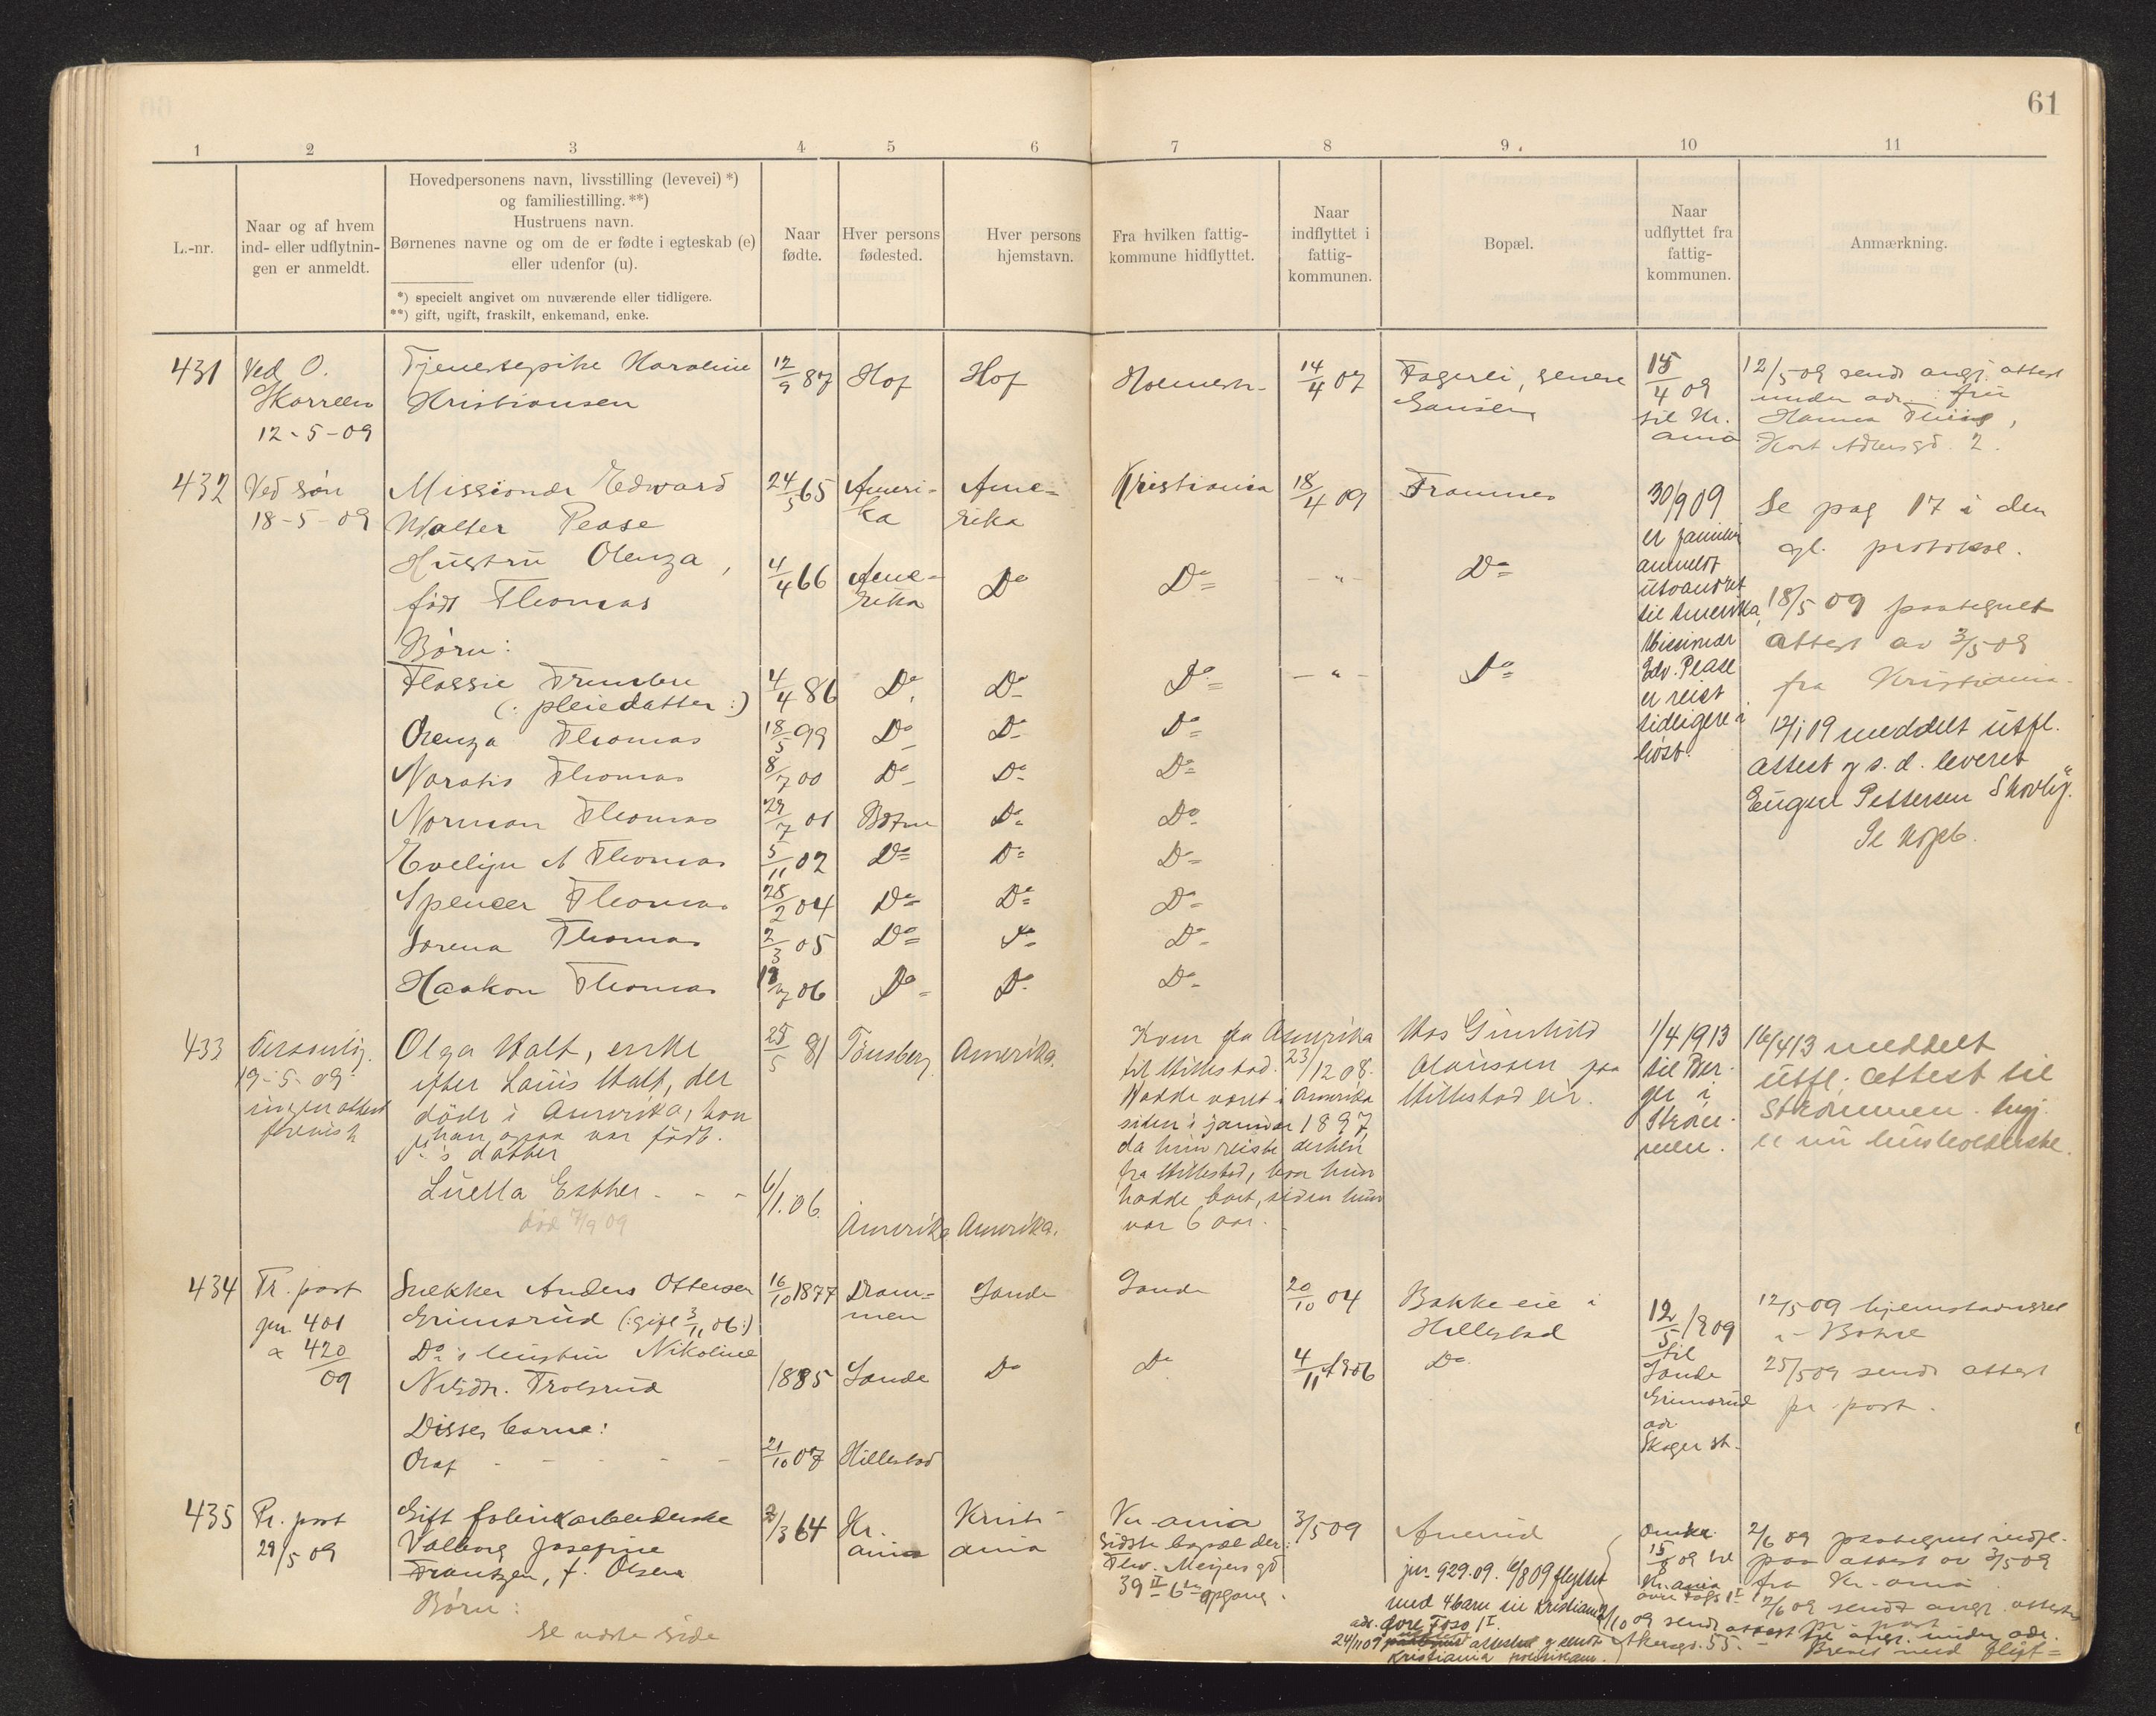 61
1 2 3 4 5 6 7 8 9 10 11
L.-nr.
Naar og af hvem
ind- eller udflytnin-
gen er anmeldt.
Hovedpersonens navn, livsstilling (levevei) *)
og familiestilling. **)
Hustruens navn.
Børnenes navne og om de er fødte i egteskab (e)
eller udenfor (u).
*) specielt angivet om nuværende eller tidligere.
**) gift, ugift, fraskilt, enkemand, enke.
Naar
fødte.
Hver persons
fødested.
Hver persons
hjemstavn.
Fra hvilken fattig-
kommune hidflyttet.
Naar
indflyttet i
fattig-
kommunen.
Bopæl.
Naar
udflyttet fra
fattig-
kommunen.
Anmærkning.
431
Ved O.
12-5-09
Tjenestepike Karoline
Kristiansen
12/9 87
Hof
Hof
Holmestr.
14/4 07
Fagerli, senere
15/4 09
til Kr.
ania
12/5 09 sendt angj. attest
under adr. : frü
Hanna
432
Ved søn
18-5-09
Missionær Edward
Walter Pease
Hustrü Olenza,
født Thomas
Børn:
Flossie
(: pleiedatter :)
Olenza Thomas
Thomas
Norman Thomas
Evelyn A Thomas
Spencer Thomas
Lorena Thomas
Haakon Thomas
24/5 65
4/4 66
4/4 86
18/5 99
8/7 00
29/7 01
5/11 02
28/2 04
2/3 05
06
Ameri-
ka
Ame-
rika
Do
Do
Do
Botne
Do
Do
Do
Do
Ame-
rika
Do
Do
Do
Do
Do
Do
Do
Do
Do
Kristiania
Do
Do
Do
Do
Do
Do
Do
Do
Do
18/4 09
- " -
- " -
Framnes
Do
Do
30/9 09
er familien
anmeldt
utvandret
til Amerika,
Missionær
Edv. Pease
er reist
tidligere i
høst.
Se pag 17 i den
gl. protokol.
18/5 09 paategnet
attest av 3/5 09
fra Kristiania.
meddelt utfl.
attest og s. d. leveret
Eugen Pettersen
Se kopb.
433
Personlig.
19-5-09
ingen attest
Olga Walt, enke
efter Louis Walt, der
døde i Amerika, hvor
han ogsaa var født.
datter
Luella Esther - - -
død 7/9 09
25/5 81
6/1. 06.
Tönsberg
Amerika
Amerika.
Amerika.
Kom fra Amerika
til Hillestad 23/12 08.
Hadde været i Amerika
siden i januar 1897,
da hun reiste derhen
fra Hillestad, hvor hun
hadde boet, siden hun
var 6 aar.
Hos Gunhild
Olaussen paa
Hillestad eie.
1/4 1913
til Ber-
ger i
Strøm-
men.
16/4 13 meddelt
utfl. attest til
Strømmen. hun
er nu husholderske.
434
Pr. post
jnr. 401
& 420/09
Snekker Anders Ottersen
Grimsrud (: gift 3/11 06 :)
Do's hustru Nikoline
Nilsdtr. Trolsrud
Disses barn:
Olaf - - - -
16/10 1877
1885
21/10 07
Dram-
men
Sande
Hillestad
Sande
Do
Sande
Do
20/10 04
4/11 1906
Bakke eie i
Hillestad
Do
12/5 1909
til
Sande
Grimsrud
adr.
Skoger st.
12/5 09 hjemstavnsret
i Botne
25/5 09 sendt attest
pr. post.
435
Pr. post
29/5 09
Gift fabrikarbeiderske
Valborg Josefine
Frantzen, f. Olsen
Børn:
se næste side
2/3 64
Kr.
ania
Kristi-
ania
Kr-ania
sidste bopæl der:
Thv. Meyers gd
39 II 6te opgang.
3/5 09
jnr. 929.09. 6/8 09 flyttet
med 4 barn til Kristiania
adr. Øvre Foss 1 I.
24/11 09 attesten og sendt
Kristiania
15/8 09 til
Kr. ania
Øvre Foss 1 I
2/6 09 paategnet indfl.
paa attest av 3/5 09
fra Kr-ania
7/6 09 sendt angj. attesten
pr. post
09 sendt attest til angj. under adr.
Akersgd. 55. -
Brevet med flyt=